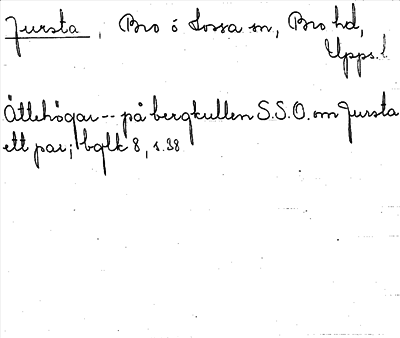 Jursta, Bro o Lossa sn, Bro hd,
Upps. l
Ättehögar -- på bergkullen S.S.O. om Jursta
ett par; bglk 8, s. 38